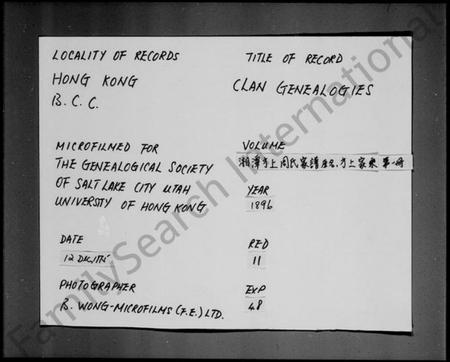 LOCALITY OF RECORDS
HONG KONG
B. C. C.
TITLE OF RECORD
CLAN GENEALOGIES
MICROFILMED FOR
THE GENEALOGICAL SOCIETY
OF SALT LAKE CITY UTAH
UNIVERSITY OF HONG KONG
VOLUME
湘潭方上周氏家譜 方上家乘 第一冊
YEAR
1896
DATE
12 DEC
RED
11
PHOTOGRAPHER
B. WONG-MICROFILMS (F.E.) LTD.
EXP
48
FamilySearch International